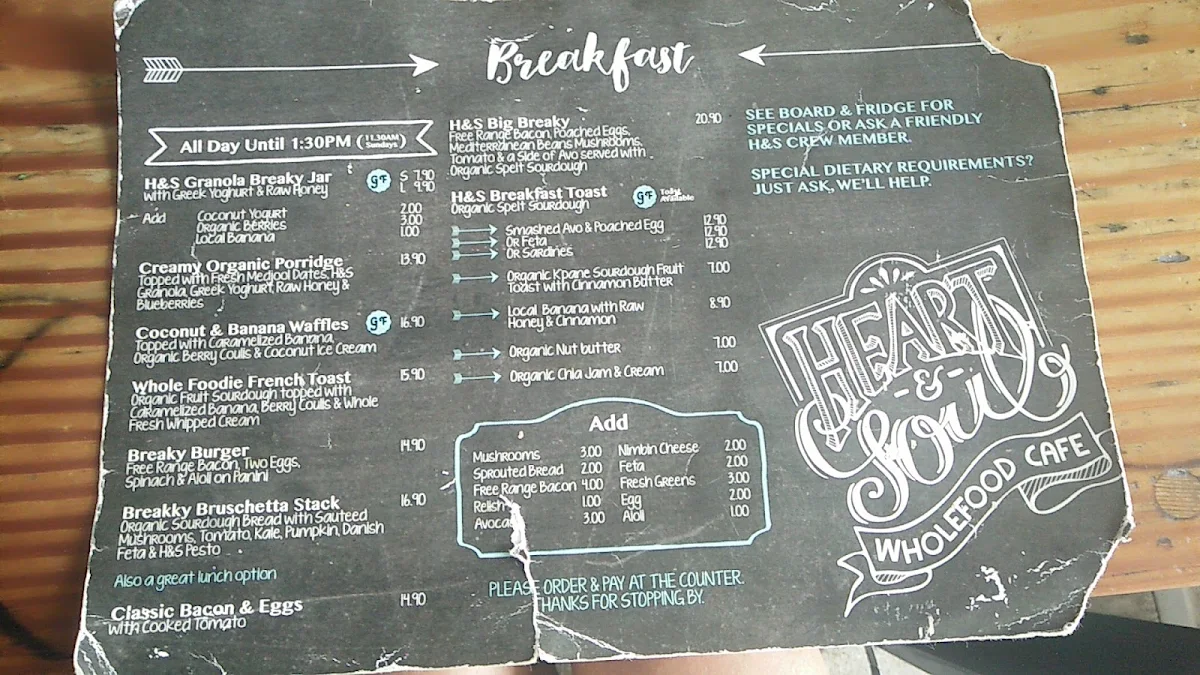 Breakfast
All Day Until 1:30PM (11.30AM Sundays)
H&S Granola Breaky Jar GF S 7.90
with Greek Yoghurt & Raw Honey L 9.90
Add Coconut Yogurt 2.00
Organic Berries 3.00
Local Banana 1.00
Creamy Organic Porridge 13.90
Topped with Fresh Medjool Dates, H&S
Granola, Greek Yoghurt, Raw Honey &
Blueberries
Coconut & Banana Waffles GF 16.90
Topped with Caramelized Banana,
Organic Berry Coulis & Coconut Ice Cream
Whole Foodie French Toast 15.90
Organic Fruit Sourdough topped with
Caramelized Banana, Berry Coulis & Whole
Fresh Whipped Cream
Breaky Burger 14.90
Free Range Bacon, Two Eggs,
Spinach & Aioli on Panini
Breakky Bruschetta Stack 16.90
Organic Sourdough Bread with Sauteed
Mushrooms, Tomato, Kale, Pumpkin, Danish
Feta & H&S Pesto
Also a great lunch option
Classic Bacon & Eggs 14.90
with Cooked Tomato
H&S Big Breaky 20.90
Free Range Bacon, Poached Eggs,
Mediterranean Beans Mushrooms,
Tomato & a Side of Avo served with
Organic Spelt Sourdough
H&S Breakfast Toast GF Toast Available
Organic Spelt Sourdough
Smashed Avo & Poached Egg 12.90
Or Feta 12.90
Or Sardines 12.90
Organic Kpane Sourdough Fruit 7.00
Toast with Cinnamon Butter
Local Banana with Raw 8.90
Honey & Cinnamon
Organic Nut butter 7.00
Organic Chia Jam & Cream 7.00
Add
Mushrooms 3.00
Sprouted Bread 2.00
Free Range Bacon 4.00
Relish 1.00
3.00
Nimbin Cheese 2.00
Feta 2.00
Fresh Greens 3.00
Egg 2.00
Aioli 1.00
PLEASE ORDER & PAY AT THE COUNTER.
THANKS FOR STOPPING BY.
SEE BOARD & FRIDGE FOR
SPECIALS OR ASK A FRIENDLY
H&S CREW MEMBER.
SPECIAL DIETARY REQUIREMENTS?
JUST ASK, WE'LL HELP.
HEART
&
Soul
WHOLEFOOD CAFE